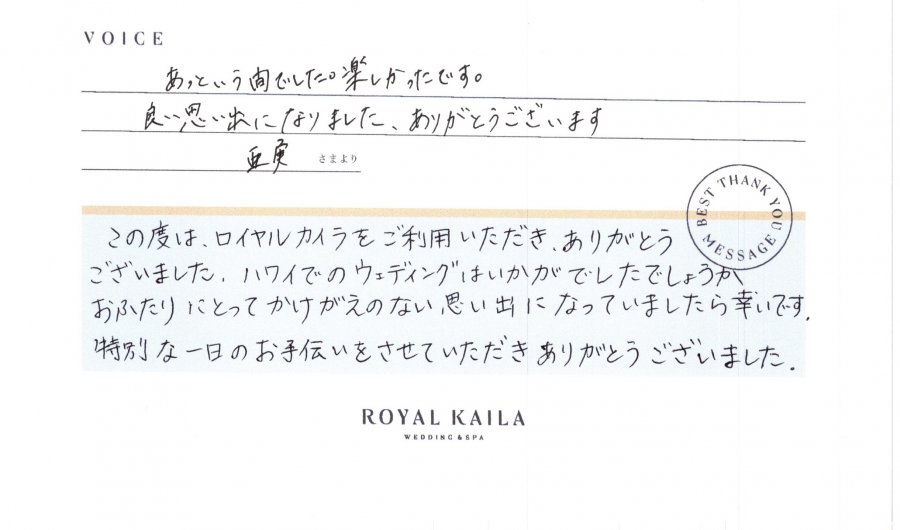 VOICE
あっという間でした。楽しかったです。
良い思い出になりました、ありがとうございます
亜実 さまより
BEST THANK YOU MESSAGE
この度は、ロイヤルカイラをご利用いただき、ありがとう
ございました。ハワイでのウェディングはいかがでしたでしょうか
おふたりにとってかけがえのない思い出になっていましたら幸いです。
特別な一日のお手伝いをさせていただきありがとうございました。
ROYAL KAILA
WEDDING & SPA